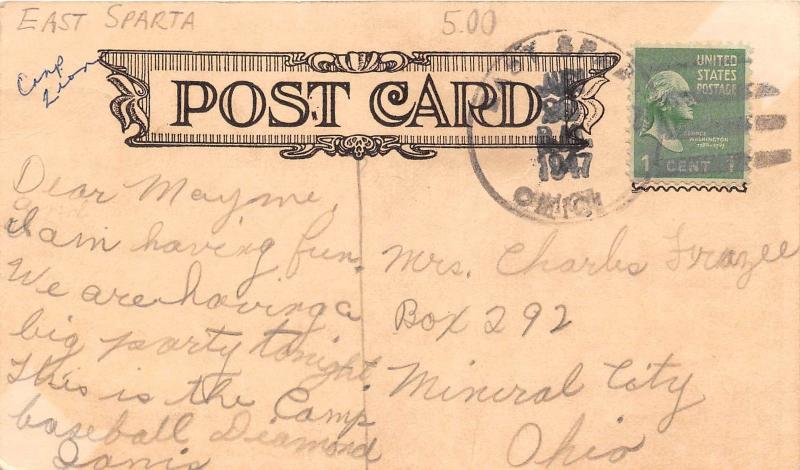 EAST SPARTA
5.00
Camp
Zion
POST CARD
EAST SPARTA
AUG
P.M.
1947
OHIO
UNITED
STATES
POSTAGE
GEORGE
WASHINGTON
1789-1797
1 CENT 1
Dear Mayme,
I am having fun.
We are having a
big party tonight.
This is the Camp
baseball Diamond
Janis
Mrs. Charles Frazee
Box 292
Mineral City
Ohio